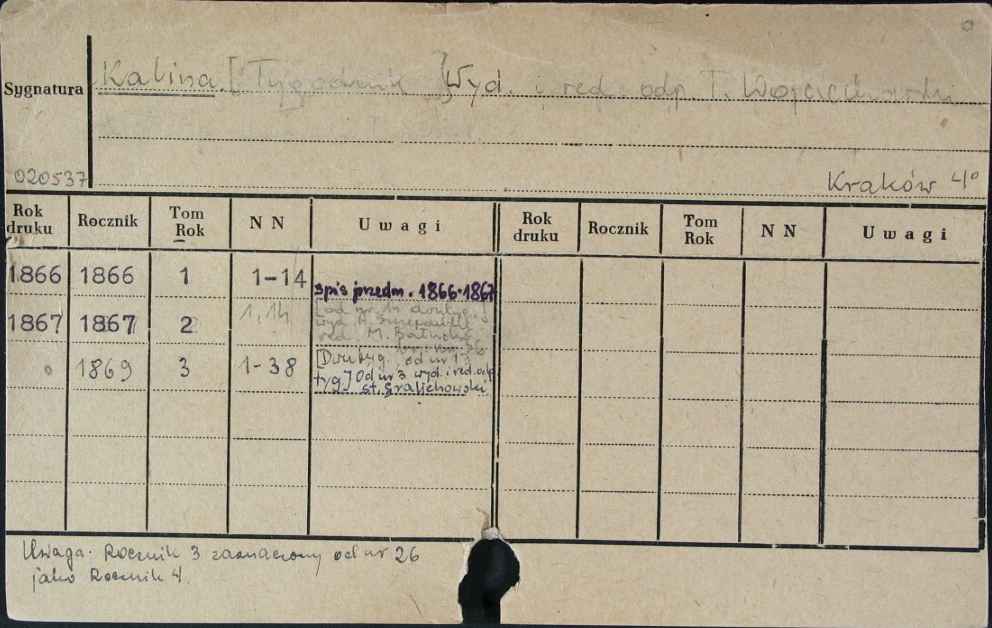 Sygnatura Kalina. [Tygodnik] Wyd. i red. odp. T.
020537 Kraków 4°
Rok druku Rocznik Tom Rok NN Uwagi Rok druku Rocznik Tom Rok NN Uwagi
1866 1866 1 1-14 spis przedm. 1866-1867
1867 1867 2 1,14
[od nr 14
wyd. A.
red. M. Bałucki
1869 3 1-38
[Dwutyg. od nr 13
tyg] Od nr 3 wyd. i red. odp
St. Gralichowski
Uwaga. Rocznik 3 zaznaczony od nr 26
jako Rocznik 4.